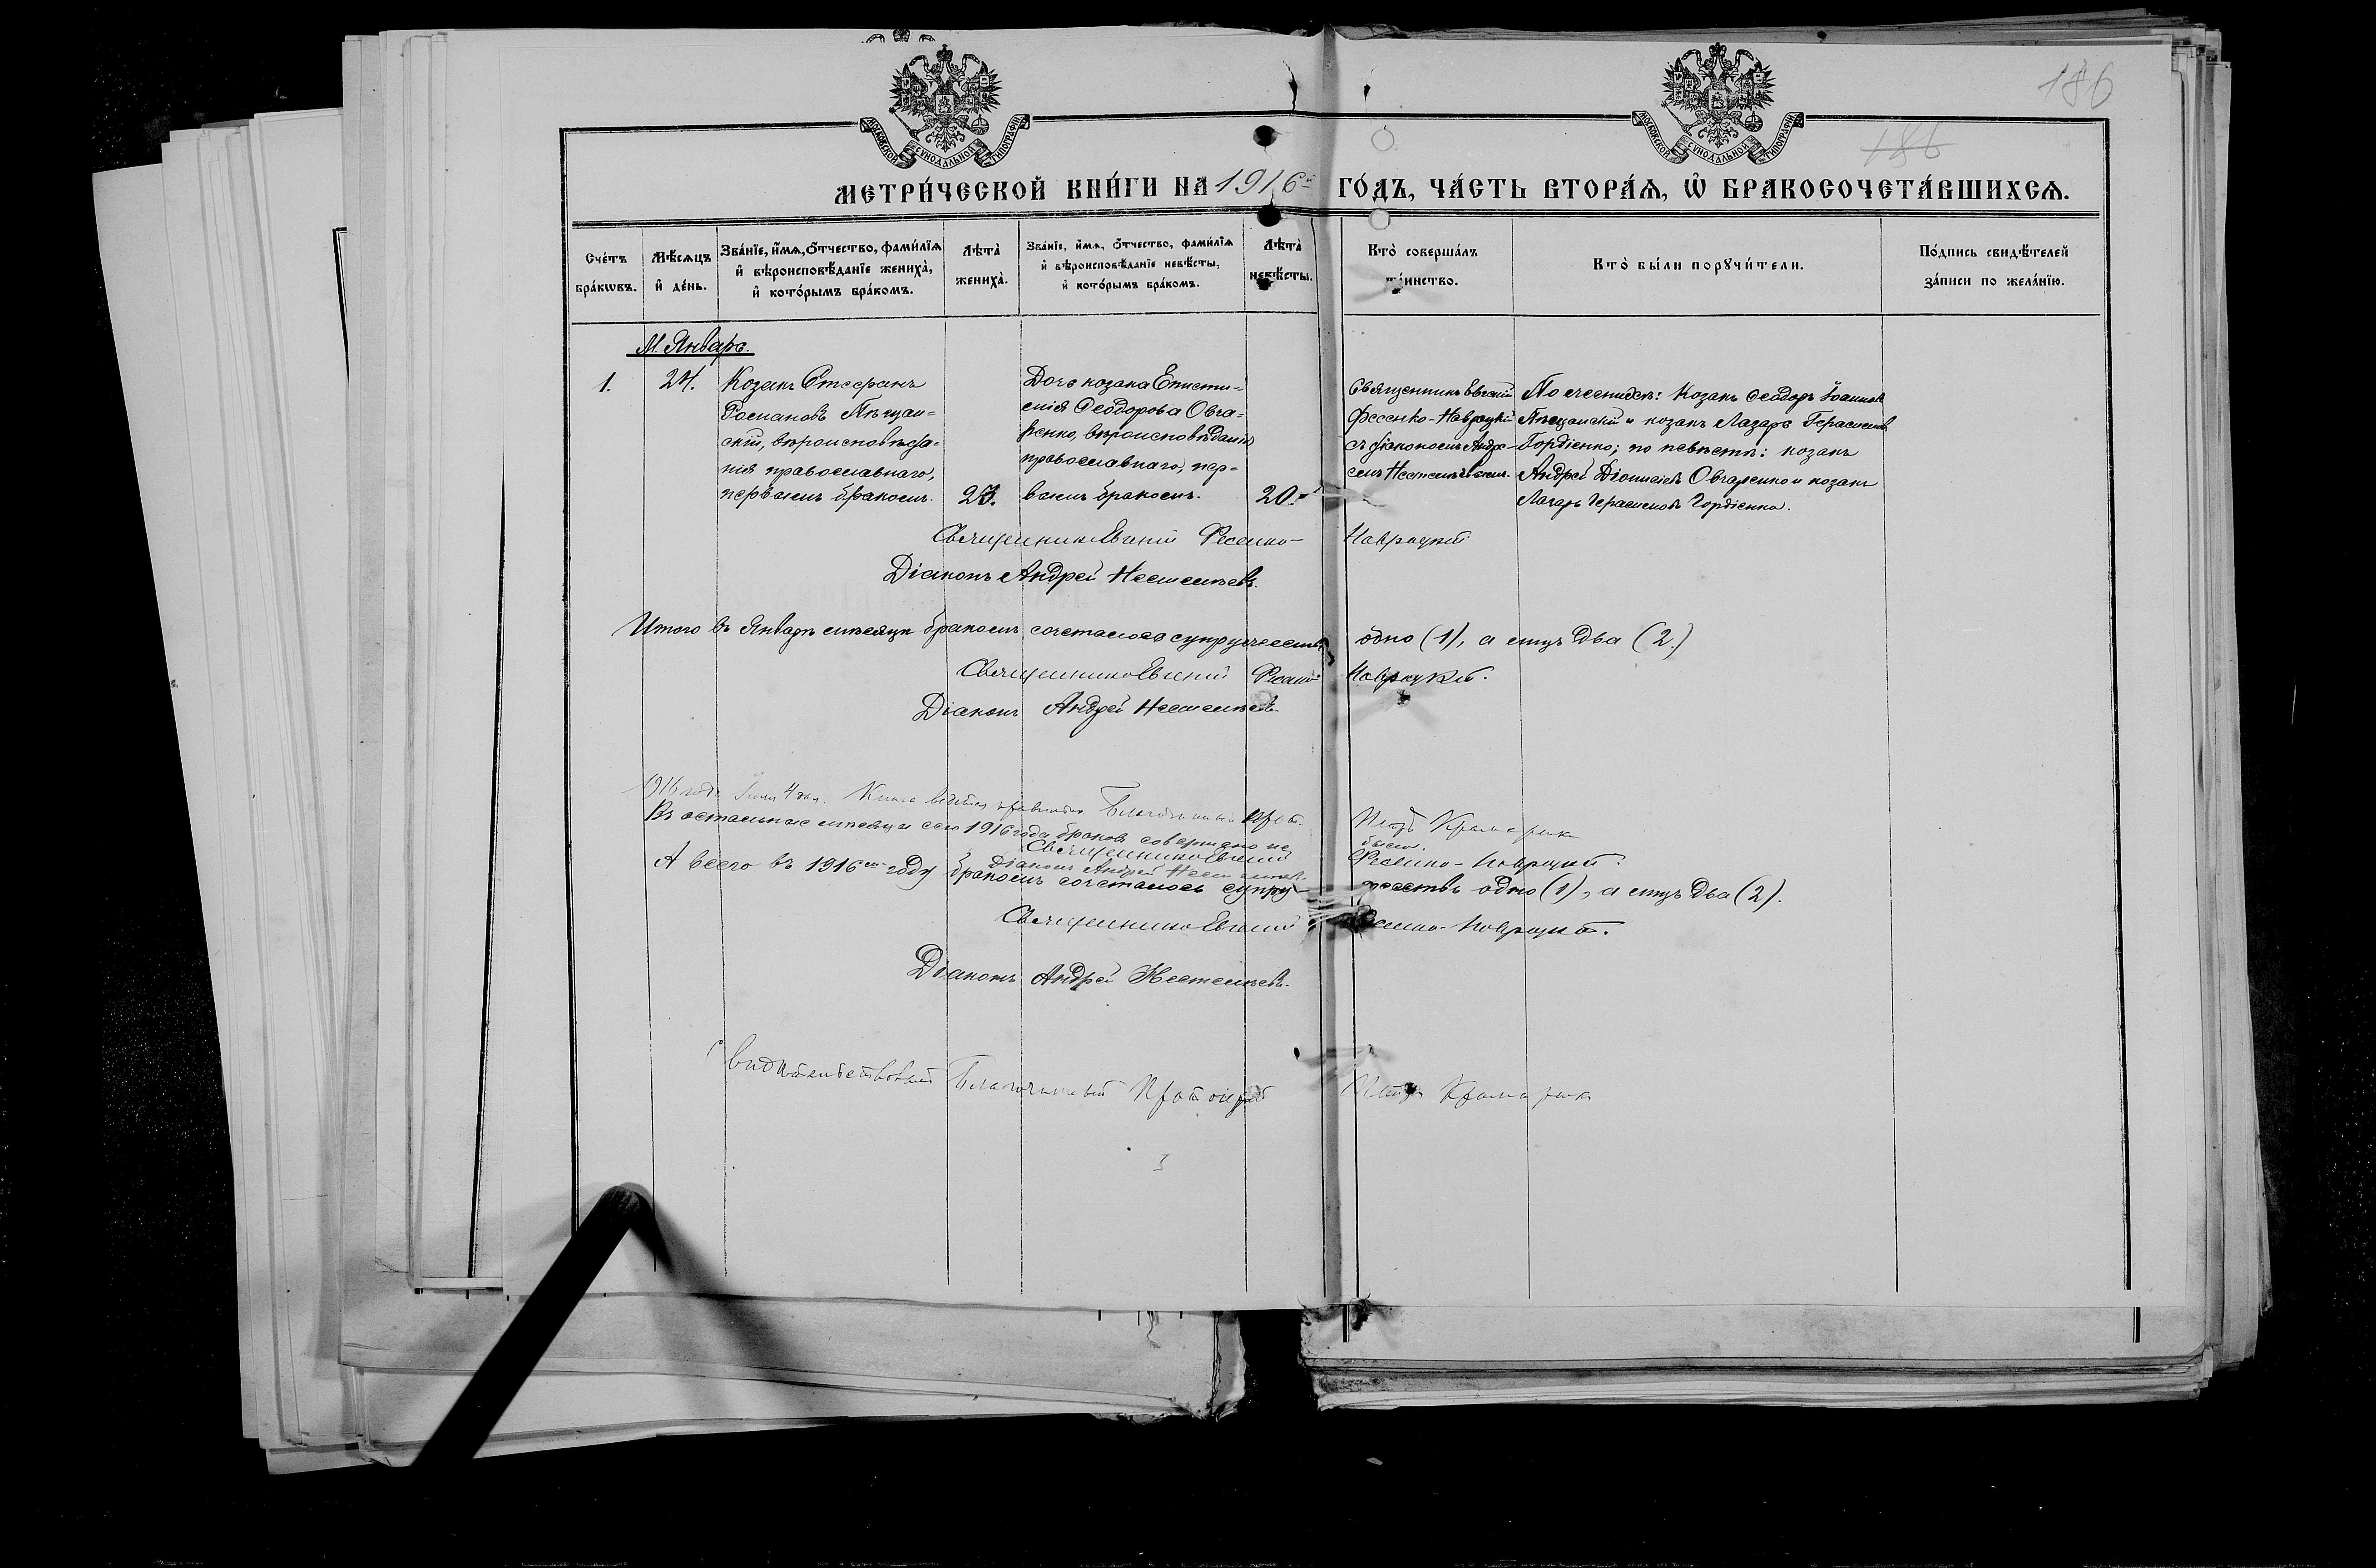 186
186
МОСКОВСКОЙ СѴНОДАЛЬНОЙ ТИПОГРАФІИ
МОСКОВСКОЙ СѴНОДАЛЬНОЙ ТИПОГРАФІИ
МЕТРИ́ЧЕСКОЙ КНИ́ГИ НА 1916-й ГО́ДЪ, ЧА́СТЬ ВТОРА́Я, Ѡ БРАКОСОЧЕТА́ВШИХСЯ.
Сче́тъ
бра́кѡвъ.
Мѣ́сяцъ
и҆ де́нь.
Зва́нїе, и҆́мя, ѻ҆́тчество, фами́лїя
и҆ вѣроисповѣ́данїе жениха̀,
и҆ кото́рымъ бра́комъ.
Лѣта̀
жениха̀.
Зва́нїе, и҆́мя, ѻ҆́тчество, фами́лїя
и҆ вѣроисповѣ́данїе невѣ́сты,
и҆ кото́рымъ бра́комъ.
Лѣта̀
невѣ́сты.
Кто̀ соверша́лъ
та́инство.
Кто̀ бы́ли порꙋчи́тели.
По́дпись свидѣ́телей
за́писи по жела́нїю.
М. Январь.
1.
24.
Козакъ Стефанъ
Романовъ Пѣщан-
скій, вѣроисповѣда-
нія православнаго,
первымъ бракомъ.
23.
Дочь козака Еписти-
мія Ѳеодорова Овча-
ренко, вѣроисповѣданія
православнаго, пер-
вымъ бракомъ.
20.
Священникъ Евгеній
Фесенко-Навроцкій
съ діакономъ Андре-
емъ
По женихѣ: Козакъ Ѳеодоръ Іоанновъ
Пѣщанскій и козакъ Лазарь Герасимовъ
Гордіенко; по невѣстѣ: козакъ
Андрей Діонисіевъ Овчаренко и козакъ
Лазарь Герасимовъ Гордіенко.
Священникъ Евгеній Фесенко-Навроцкій
Діаконъ Андрей
Итого въ Январѣ мѣсяцѣ бракомъ сочеталось супружествъ одно (1), а лицъ два (2.)
Священникъ Евгеній Фесенко-Навроцкій.
Діаконъ Андрей
1916 года 4 дня. Книга ведется правильно Благочинный Прот. Петръ
Въ остальные мѣсяцы сего 1916 года браковъ совершено не было.
Священникъ Евгеній Фесенко-Навроцкій.
Діаконъ Андрей
А всего въ 1916-мъ году бракомъ сочеталось супружествъ одно (1), а лицъ два (2).
Священникъ Евгеній Фесенко-Навроцкій.
Діаконъ Андрей
Свидѣтельствовалъ Благочинный Протоіерей Петръ